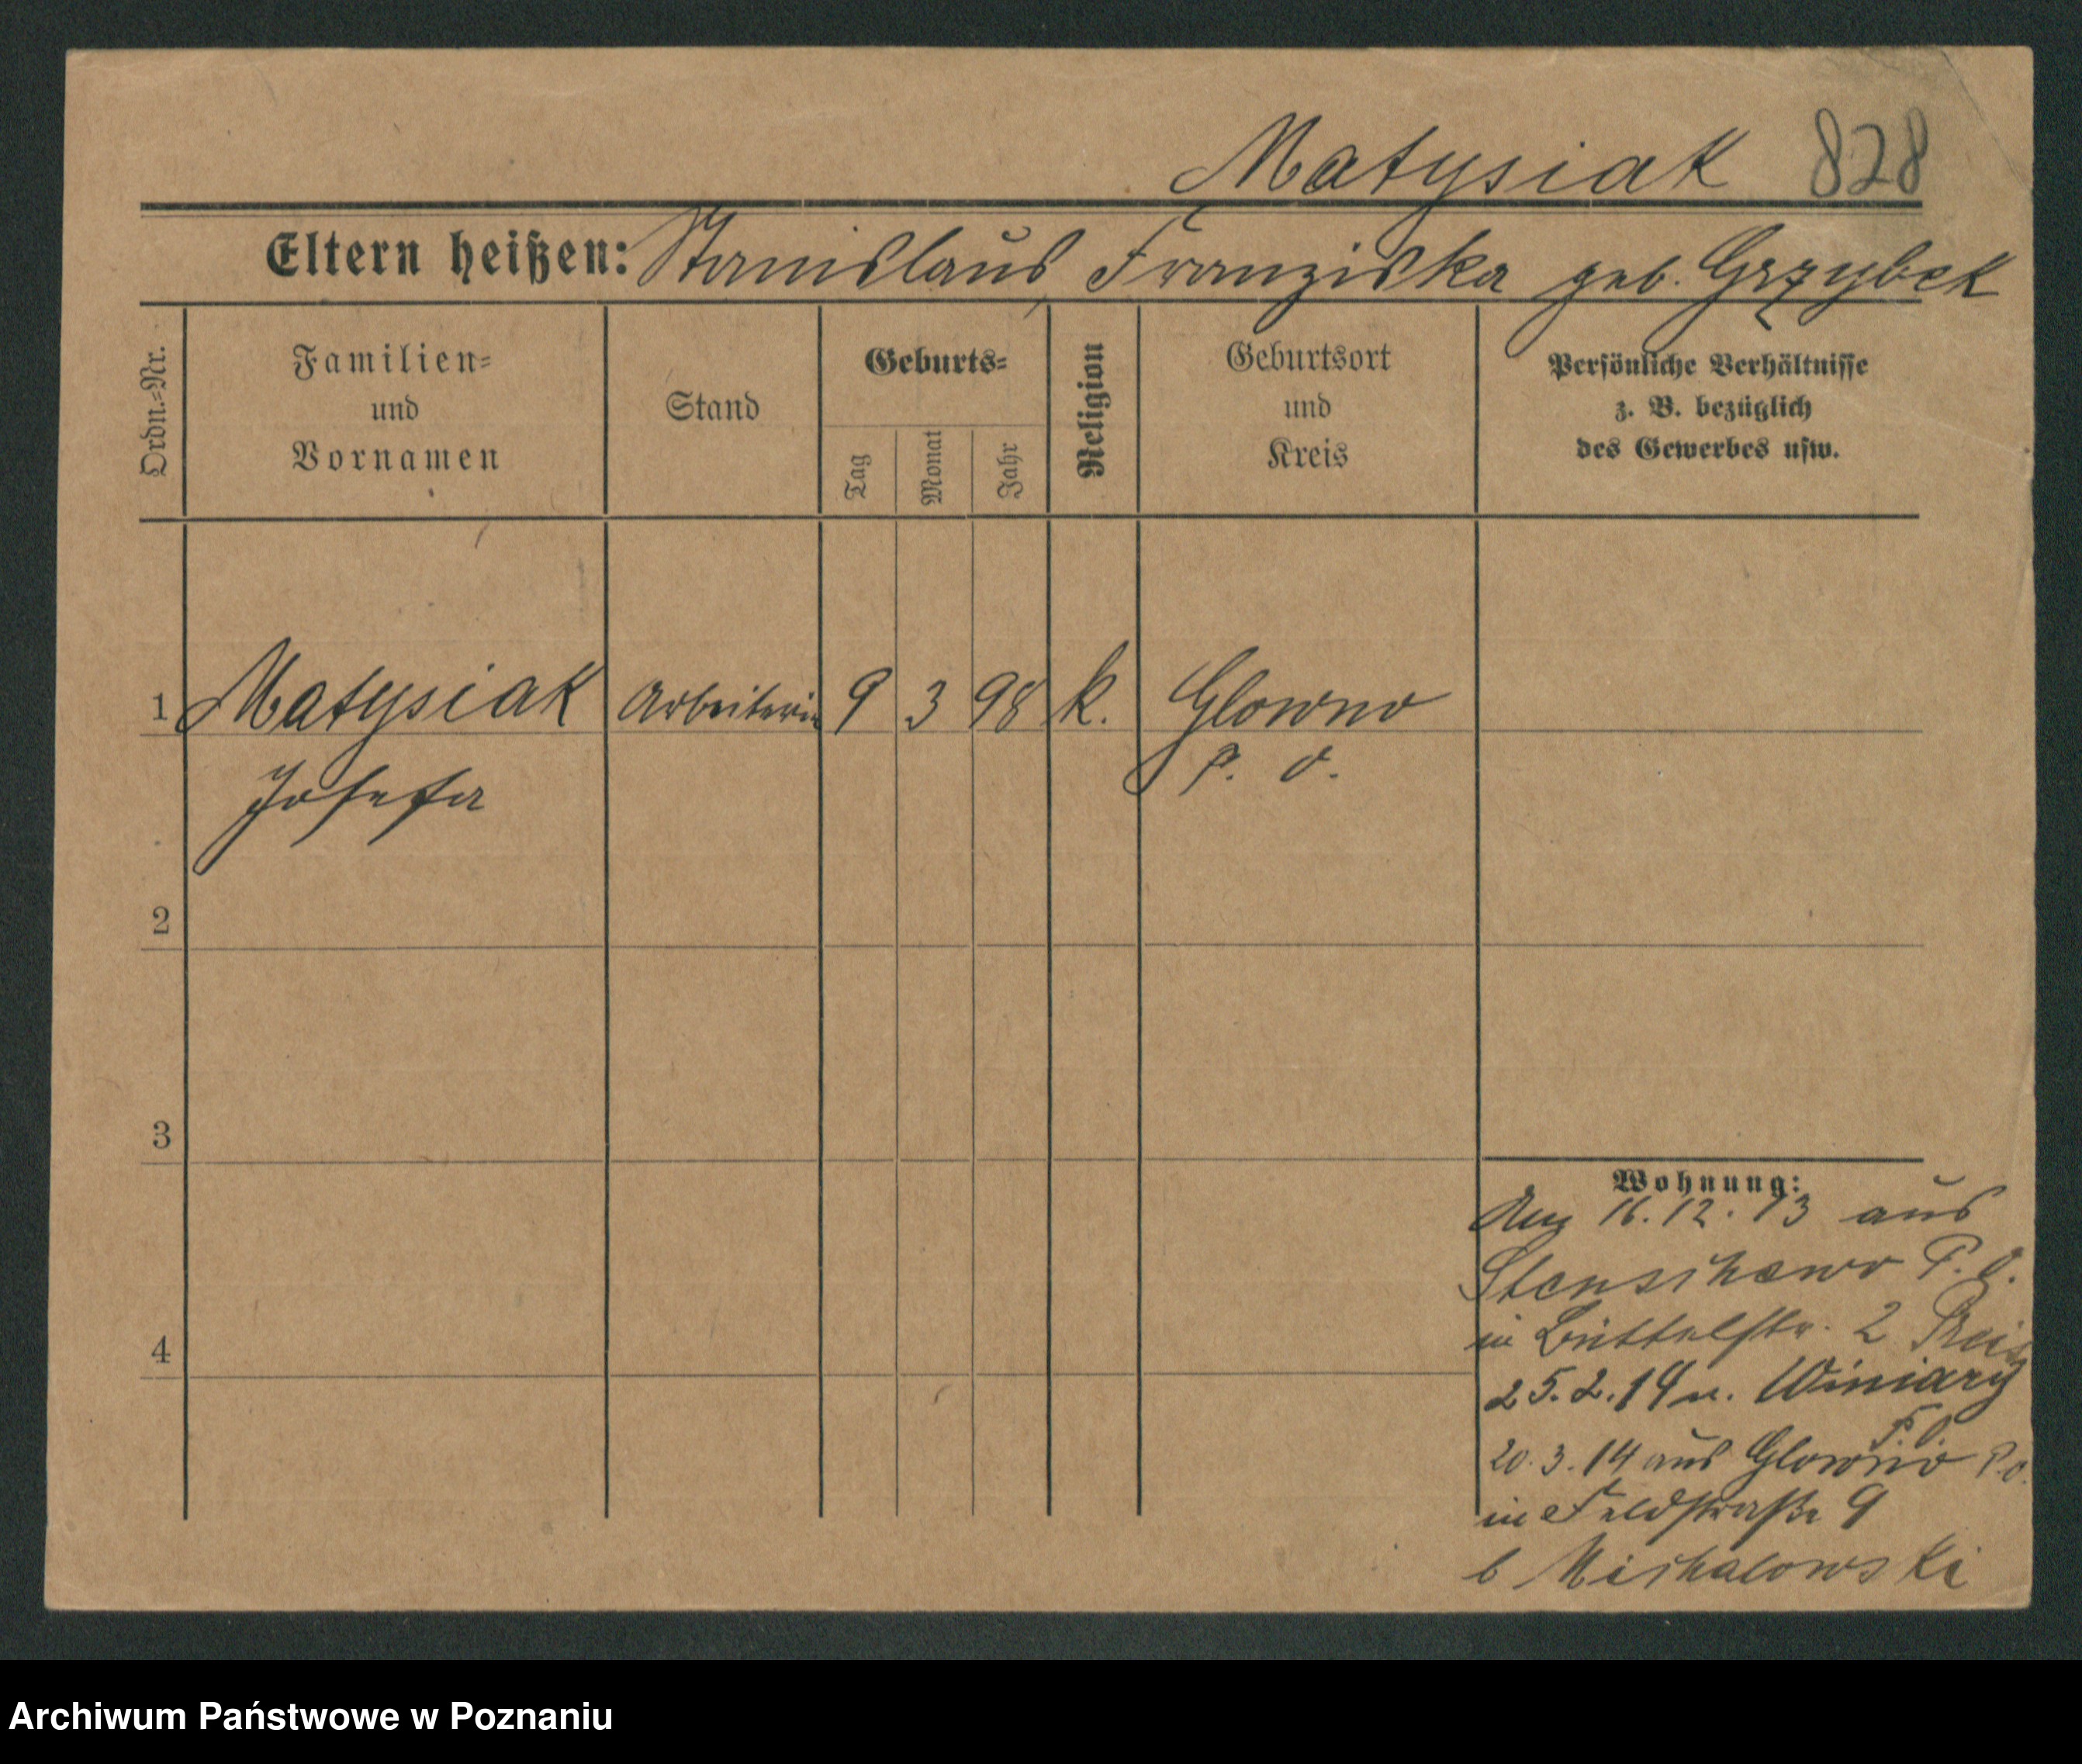 Matysiak 828
Eltern heißen: Stanislaus, Franziska geb. Grzybek
Ordn.-Nr.
Familien-
und
Vornamen
Stand
Geburts-
Tag
Monat
Jahr
Religion
Geburtsort
und
Kreis
Persönliche Verhältnisse
z. B. bezüglich
des Gewerbes usw.
1 Matysiak Arbeiterin 9 3 98 k. Glowno
Josefa P. O.
2
3
4
Wohnung:
16.12.13 aus
P. O.
in 2
25.2.14 n. Winiary
P. O.
20.3.14 aus Glowno P. O.
in Feldstraße 9
b Michalowski
Archiwum Państwowe w Poznaniu